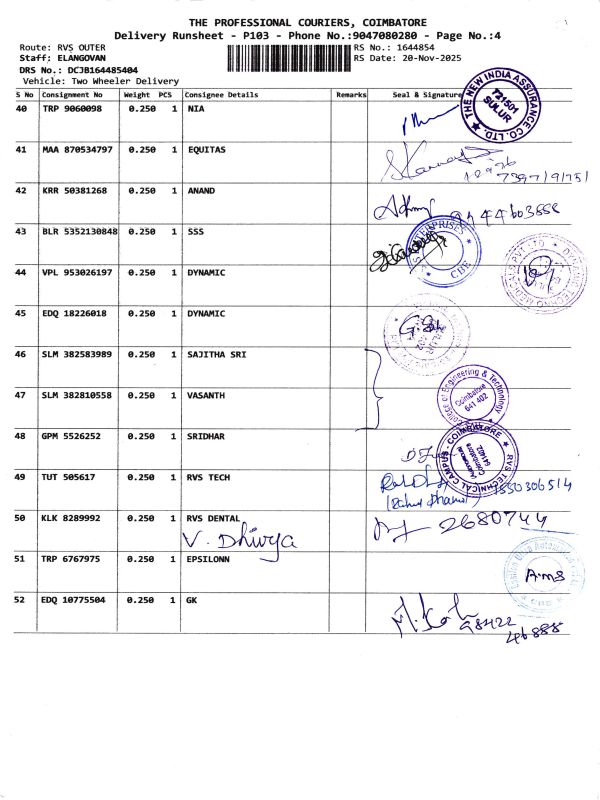 THE PROFESSIONAL COURIERS, COIMBATORE
Delivery Runsheet - P103 - Phone No.:9047080280 - Page No.:4
Route: RVS OUTER RS No.: 1644854
Staff; ELANGOVAN RS Date: 20-Nov-2025
DRS No.: DCJB164485404
Vehicle: Two Wheeler Delivery
S No Consignment No Weight PCS Consignee Details Remarks Seal & Signature
THE NEW INDIA ASSURANCE CO. LTD. ★
721501
SULUR
40 TRP 9060098 0.250 1 NIA
41 MAA 870534797 0.250 1 EQUITAS
42 KRR 50381268 0.250 1 ANAND
43 BLR 5352130848 0.250 1 SSS
ENTERPRISES
CBE
44 VPL 953026197 0.250 1 DYNAMIC
45 EDQ 18226018 0.250 1 DYNAMIC
46 SLM 382583989 0.250 1 SAJITHA SRI
College of Engineering & Technology
Coimbatore
641 402
47 SLM 382810558 0.250 1 VASANTH
48 GPM 5526252 0.250 1 SRIDHAR
RVS TECHNICAL CAMPUS - COIMBATORE
Coimbatore
641402
49 TUT 505617 0.250 1 RVS TECH
50 KLK 8289992 0.250 1 RVS DENTAL
V. Dhivya
2680744
51 TRP 6767975 0.250 1 EPSILONN
A.m.s
52 EDQ 10775504 0.250 1 GK
98422
46888